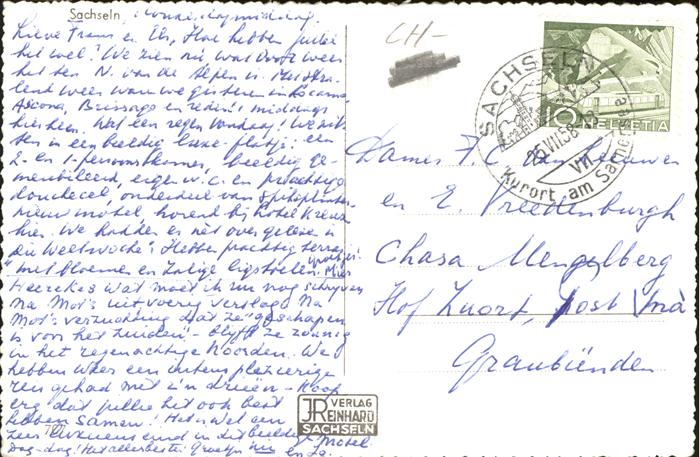 Sachseln
Donderdagmiddag.
Lieve Frans en Els, Hoe hebben jullie
het wel? We zien nu wat voor weer
het ten N. van de Alpen is. Stra-
lend weer waren we gisteren in Locarno
Ascona, Brissago en reden 's middags
hierheen. Wat een regen vandaag! We zit-
ten in een beeldig luxe-flatje: een
2- en 1-persoonskamer, beeldig ge-
meubileerd, eigen w.c. en prachtige
douchecel, onderdeel van splinter-
nieuw motel, horend bij Hotel Kreuz
hier. We hadden er net over gelezen in
die Weltwoche! Hebben prachtig terras
met bloemen en zalige ligstoelen.
Heerke wat moet ik nu nog schrijven
na Mot's uitvoerig verslag. Na
Mot's verzuchting dat ze "geschapen
is voor het zuiden" - blijft ze zonnig
in het regenachtige Noorden. We
hebben weer een plezierige
reis gehad met z'n drieën - hoop
erg dat jullie het ook best
hebben samen! Het is wel een
zeer in dit beeldige motel
Dag-dag! Het allerbeste! Groetjes
CH-
SACHSELN
25.VII.58
VII
Kurort am Sarnersee
10 HELVETIA
Dames F.C. van Leeuwen
en E. Vreedenburgh
Chasa Mengelberg
Hof Zuort, Post Vnà
Graubünden
JR VERLAG
REINHARD
SACHSELN